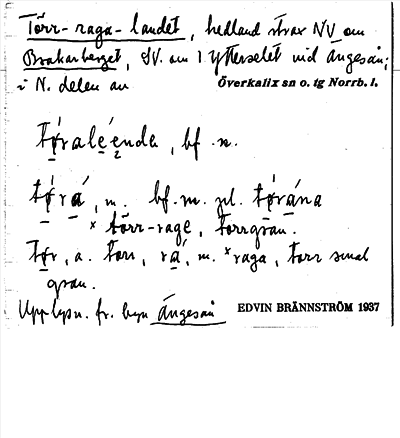 Törr-raga-landet, hedland strax NV om
Brakarberget, SV. om 1. Ytterselet vid Ängesån;
i N. delen av Överkalix sn o. tg Norrb. l.
tø̀raléenda, bf. n.
tø̀rá, m. bf. m. pl. tø̀rána
* törr-rage, torrgran.
tør, a. torr, rá, m. *raga, torr smal
gran.
Upplysn. fr. byn Ängesån EDVIN BRÄNNSTRÖM 1937